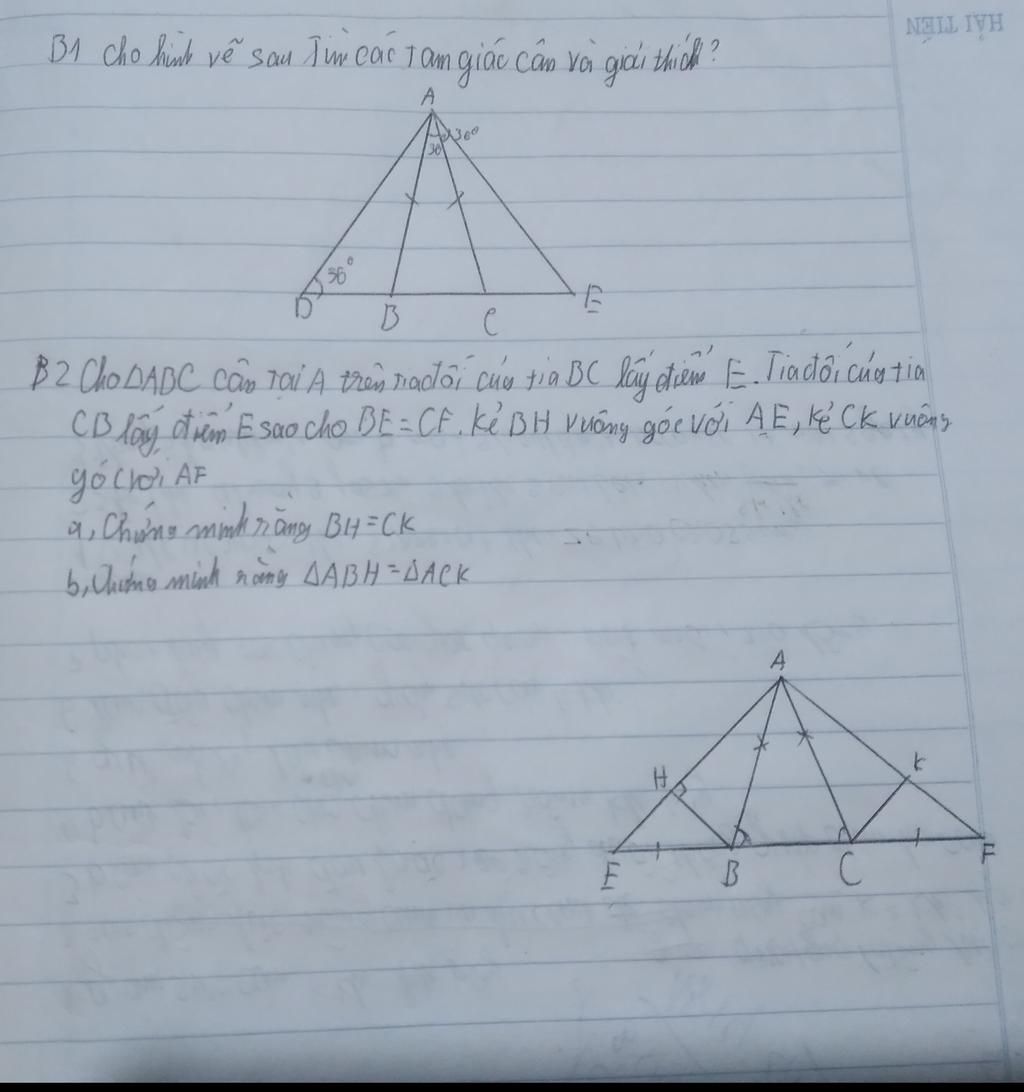 HẢI TIẾN
B1 Cho hình vẽ sau Tìm các Tam giác cân và giải thích?
A
36°
36
36°
D
B
C
E
B2 Cho ΔABC cân tại A trên tia đối của tia BC lấy điểm E. Tia đối của tia
CB lấy điểm E sao cho BE = CF. Kẻ BH vuông góc với AE, kẻ CK vuông
góc với AF
a, Chứng minh rằng BH = CK
b, Chứng minh rằng ΔABH = ΔACK
A
H
K
E
B
C
F